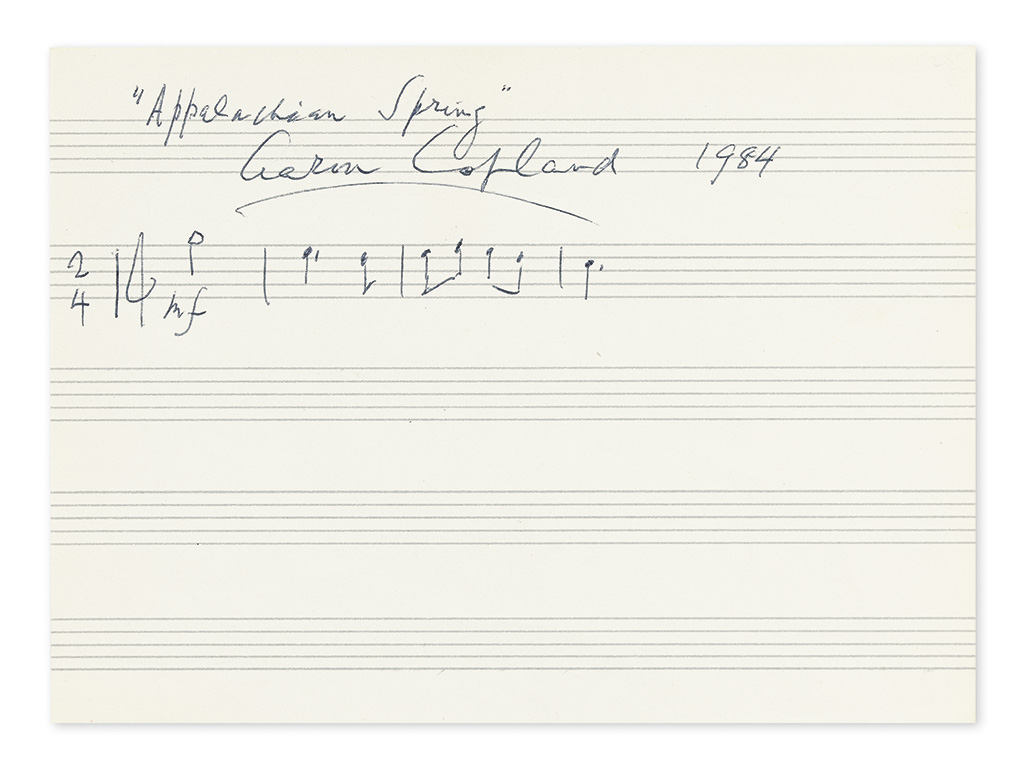 "Appalachian Spring"
Aaron Copland 1984
2
4
mf